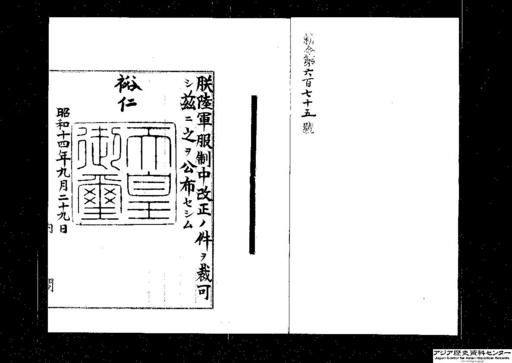 勅令第六百七十五號
朕陸軍服制中改正ノ件ヲ裁可
シ茲ニ之ヲ公布セシム
裕仁
天皇御璽
昭和十四年九月二十九日
アジア歴史資料センター
Japan Center for Asian Historical Records